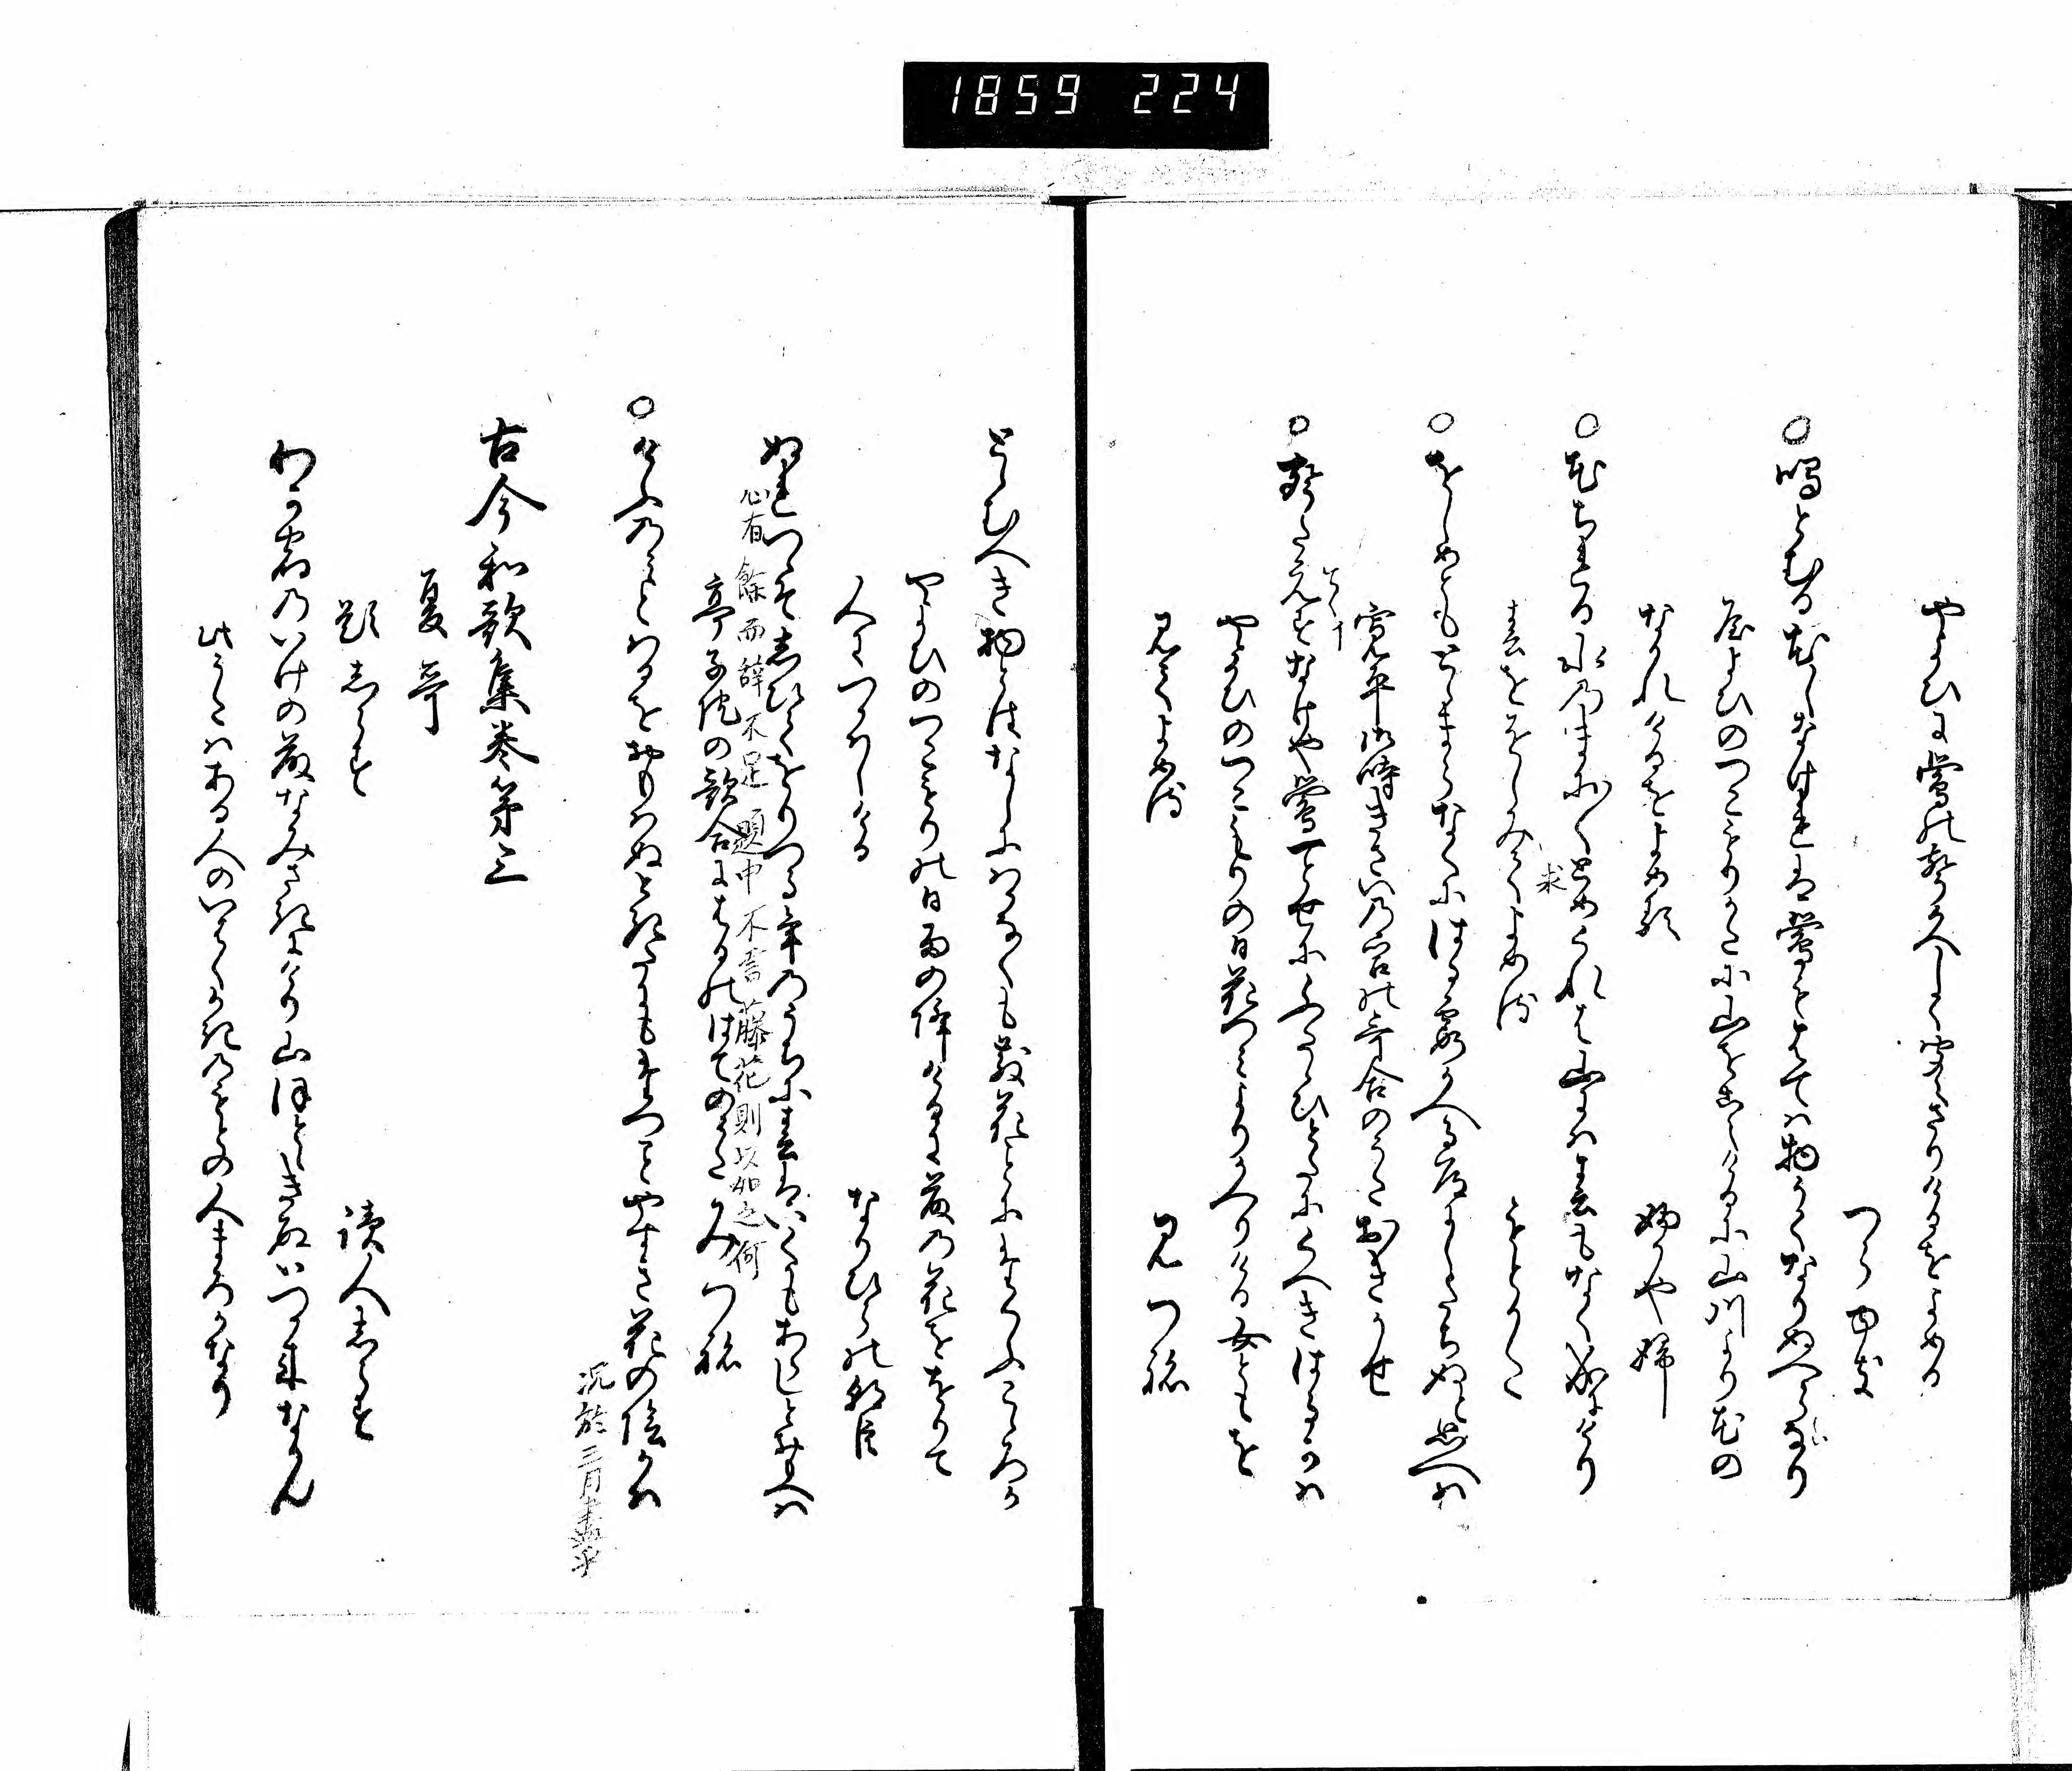 1859 224
やよひに鶯の声久しく聞えさりけるをよめる
つらゆき
○鳴とむる花しなけれは鶯もはては物うくなりぬへらなり
やよひのつこもりかたに山をこえけるに山川より花の
なかれけるをよめる
ふかやふ
○花ちれる水のまに〳〵とめくれは山には春もなく成にけり
求
春をおしみてよめる
もとかた
○をしめともとゝまらなくにはる霞かへる道にしたちぬと思へは
寛平御時きさいの宮の哥合のうた おきかせ
○声たえすなけや鶯一とせにふたゝひとたにくへきはるかは
やよひのつこもりの日花つみよりかへりける女ともを
見てよめる
みつね
とゝむへき物とはなしにはかなくも散花ことにたくふこゝろか
やよひのつこもりの日雨の降けるに藤の花をおりて
人につかはしける
なりひらの朝臣
ぬれつゝそしひておりつる年のうちに春はいくかもあらしと思へは
心有餘而辞不足題中不書藤花則以如之何
亭子院の歌合にはるのはてのうた みつね
○けふのみとはるをおもはぬ時たにもたつことやすき花の陰かは
况於三月盡乎
古今和歌集巻第三
夏哥
題しらす
読人しらす
わか宿のいけの藤なみさきにけり山ほとゝきすいつか来なかん
此うたはある人のいはくかきのもとの人まろかなり